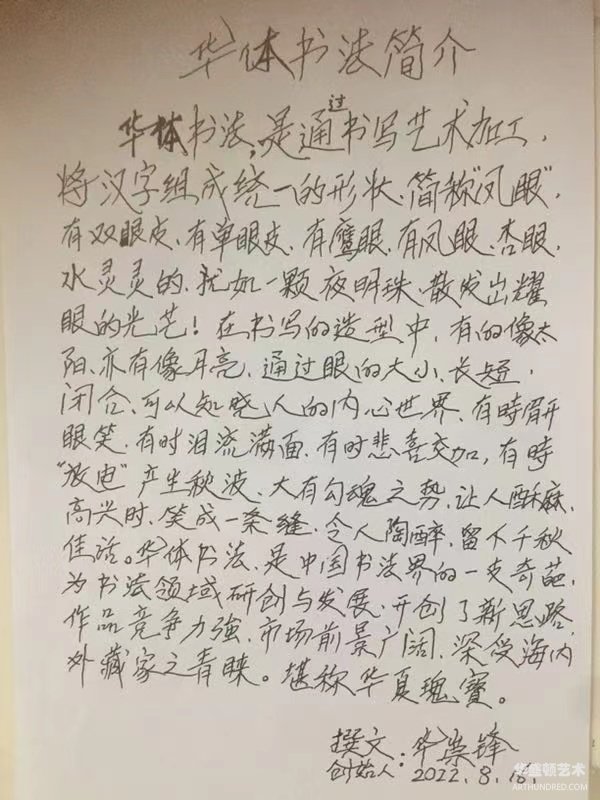 华体书法简介
华体书法,是通过书写艺术加工,
将汉字组成统一的形状、简称"凤眼",
有双眼皮、有单眼皮、有鹰眼、有凤眼、杏眼,
水灵灵的、犹如一颗夜明珠、散发出耀
眼的光芒!在书写的造型中,有的像太
阳、亦有像月亮,通过眼的大小、长短,
闭合、可以知晓人的内心世界、有時眉开
眼笑、有时泪流满面、有时悲喜交加,有時
"放电"产生秋波、大有勾魂之势、让人酥麻、
高兴时、笑成一条缝、令人陶醉、留下千秋
佳话。华体书法、是中国书法界的一支奇葩,
为书法领域研创与发展、开创了新思路,
作品竞争力強、市场前景广阔、深受海内
外藏家之青睐。堪称华夏瑰寶。
撰文:华崇锋
创始人:2022.8.18.
华盛顿艺术
ARTHUNDRED.COM